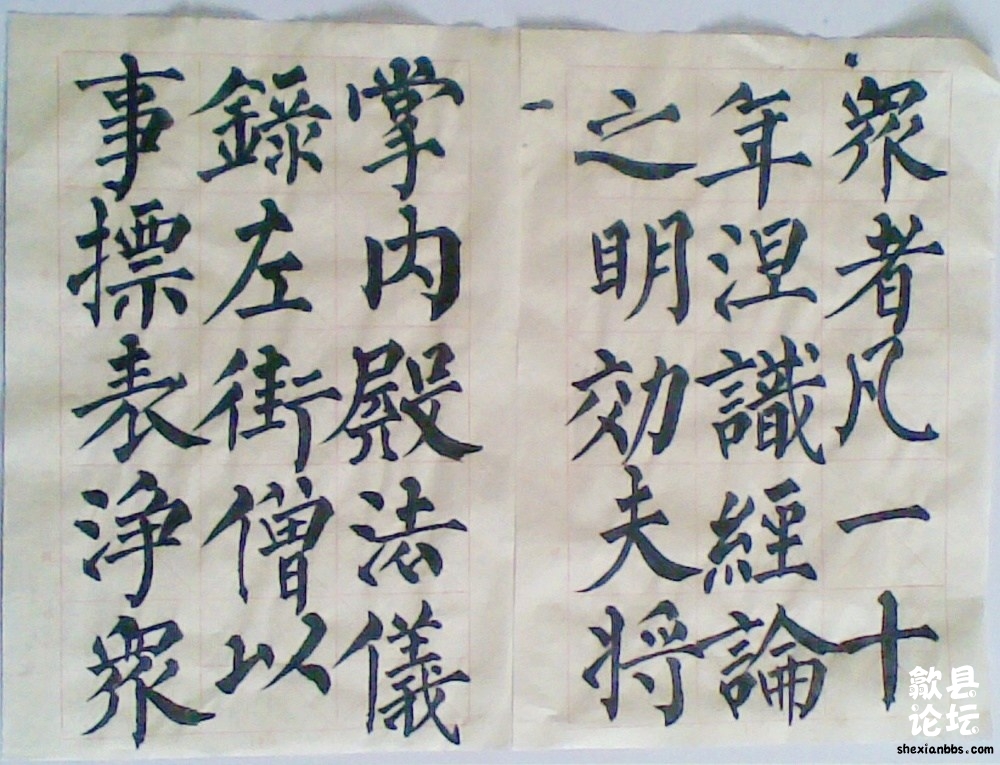 衆者凡一十
年涅識經論
之明効夫将
掌内殿法儀
録左街僧以
事摽表浄衆
歙县
论坛
shexianbbs.com